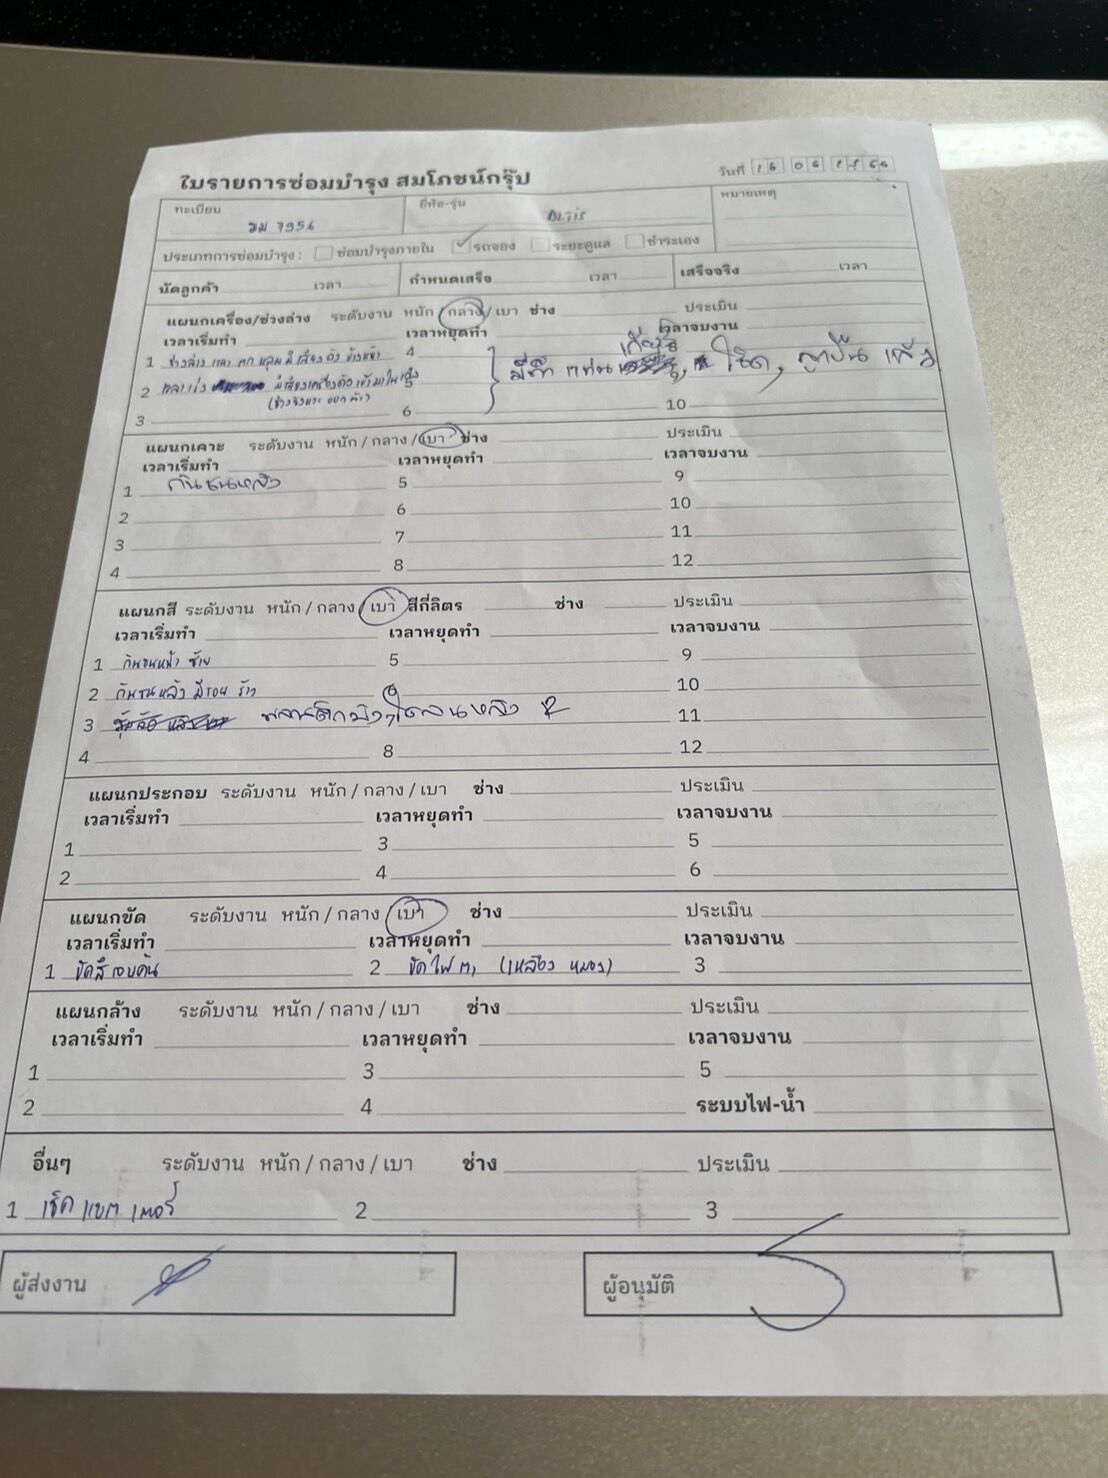 ใบรายการซ่อมบำรุง สมโภชน์กรุ๊ป
วันที่ 16 06 2566
ทะเบียน
ฆม 7956
ยี่ห้อ-รุ่น
ALTIS
หมายเหตุ
ประเภทการซ่อมบำรุง : ซ่อมบำรุงภายใน ✓ รถจอง ระยะดูแล ชำระเอง
นัดลูกค้า เวลา กำหนดเสร็จ เวลา เสร็จจริง เวลา
แผนกเครื่อง/ช่วงล่าง ระดับงาน หนัก / กลาง / เบา ช่าง ประเมิน
เวลาเริ่มทำ เวลาหยุดทำ เวลาจบงาน
1 ช่วงล่าง เวลา ตก หลุม มีเสียงดัง ข้างหน้า 4
2 เวลาเร่ง มีเสียงเครื่องดังเข้ามาใน 5
3 6 10
แผนกเคาะ ระดับงาน หนัก / กลาง / เบา ช่าง ประเมิน
เวลาเริ่มทำ เวลาหยุดทำ เวลาจบงาน
1 กันชนหลัง 5 9
2 6 10
3 7 11
4 8 12
แผนกสี ระดับงาน หนัก / กลาง / เบา สีกี่ลิตร ช่าง ประเมิน
เวลาเริ่มทำ เวลาหยุดทำ เวลาจบงาน
1 กันชนหน้า ซ้าย 5 9
2 กันชนหลัง มีรอย ร้าว 6 10
3 7 11
4 8 12
แผนกประกอบ ระดับงาน หนัก / กลาง / เบา ช่าง ประเมิน
เวลาเริ่มทำ เวลาหยุดทำ เวลาจบงาน
1 3 5
2 4 6
แผนกขัด ระดับงาน หนัก / กลาง / เบา ช่าง ประเมิน
เวลาเริ่มทำ เวลาหยุดทำ เวลาจบงาน
1 ขัดสีรอบคัน 2 ขัดไฟ ตา (เหลือง หมอง) 3
แผนกล้าง ระดับงาน หนัก / กลาง / เบา ช่าง ประเมิน
เวลาเริ่มทำ เวลาหยุดทำ เวลาจบงาน
1 3 5
2 4 ระบบไฟ-น้ำ
อื่นๆ ระดับงาน หนัก / กลาง / เบา ช่าง ประเมิน
1 เช็ค แบตเตอรี่ 2 3
ผู้ส่งงาน
ผู้อนุมัติ